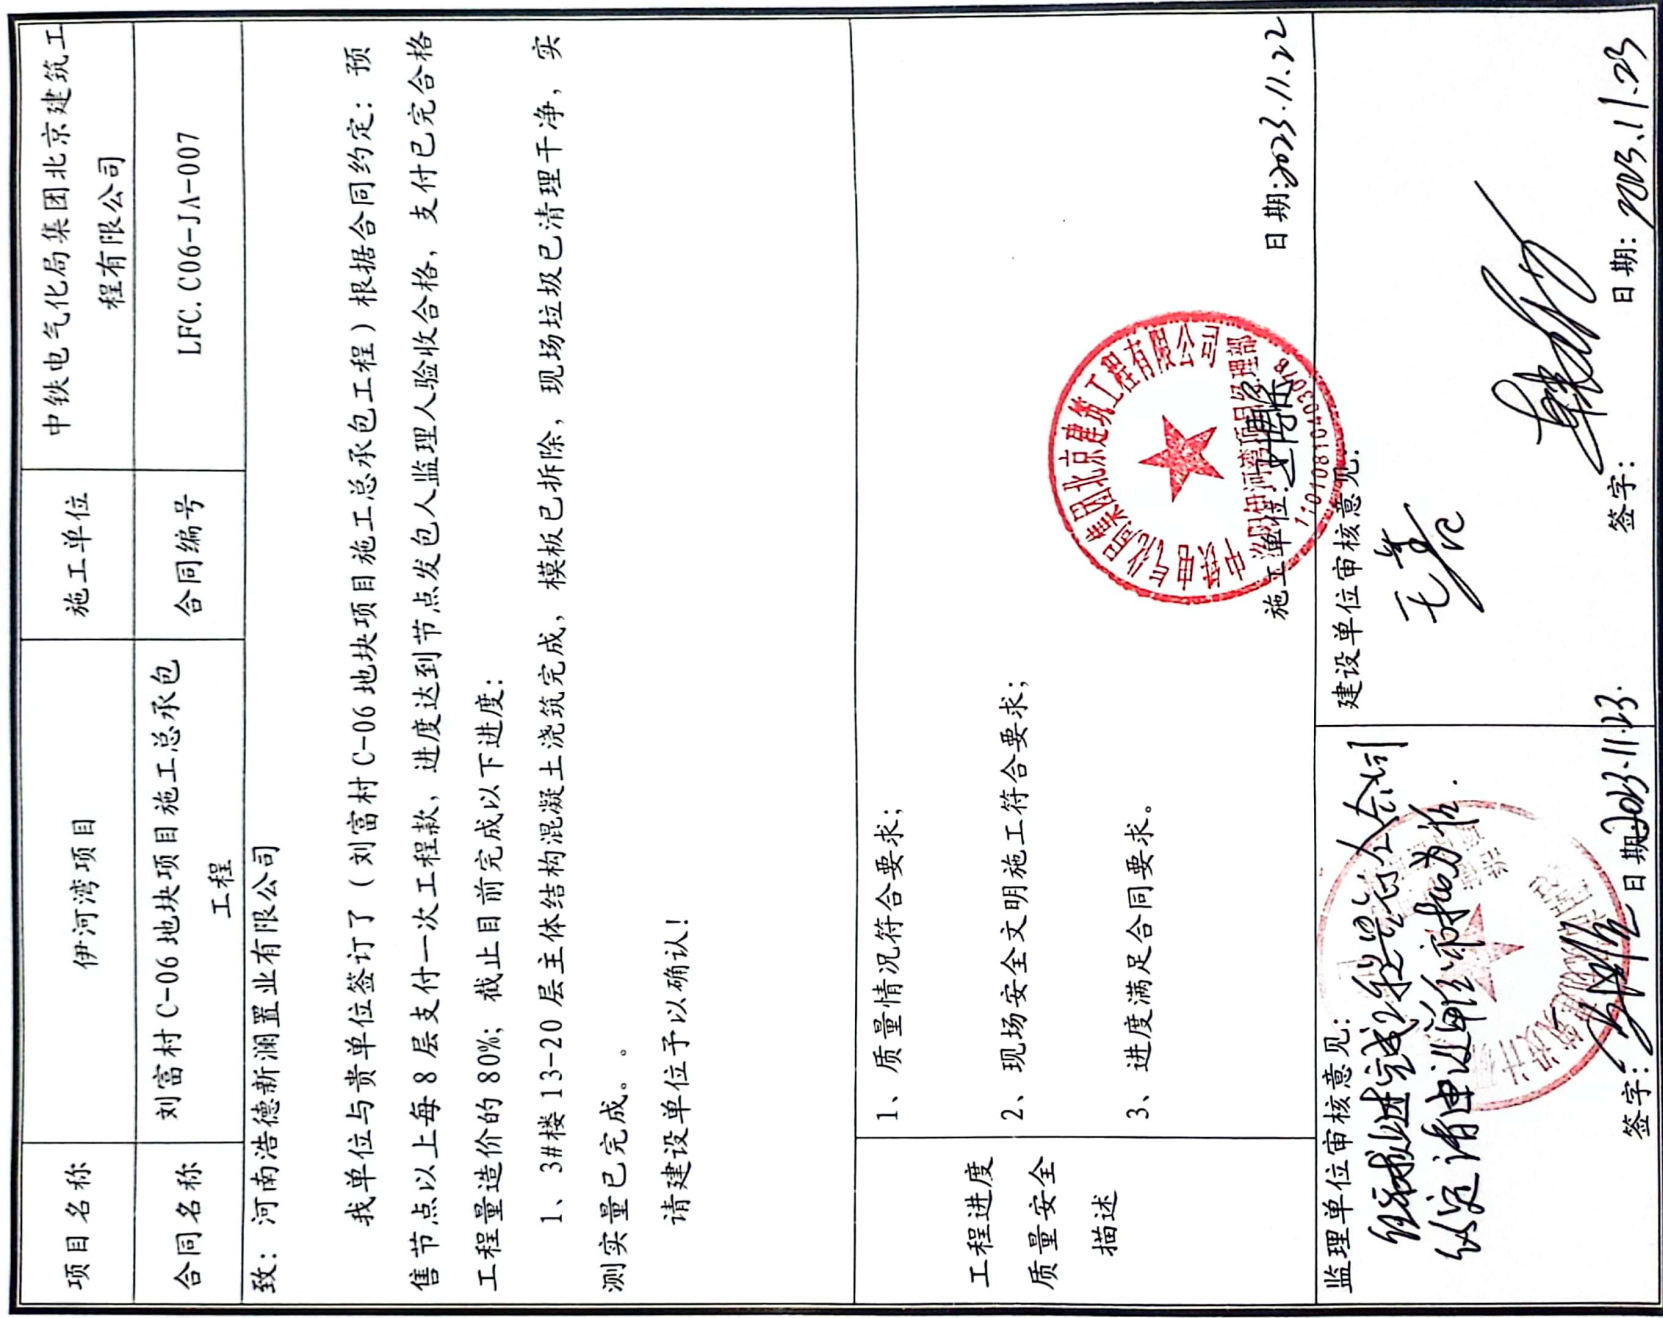 项目名称 伊河湾项目 施工单位 中铁电气化局集团北京建筑工
程有限公司
合同名称 刘富村C-06地块项目施工总承包 合同编号 LFC.C06-JA-007
工程
致：河南浩德新澜置业有限公司
我单位与贵单位签订了（刘富村C-06地块项目施工总承包工程）根据合同约定：预
售节点以上每8层支付一次工程款，进度达到节点发包人监理人验收合格，支付已完合格
工程量造价的80%；截止目前完成以下进度：
1、3#楼13-20层主体结构混凝土浇筑完成，模板已拆除，现场垃圾已清理干净，实
测实量已完成。。
请建设单位予以确认！
工程进度
质量安全
描述
1、质量情况符合要求；
2、现场安全文明施工符合要求；
3、进度满足合同要求。
中铁电气化局集团北京建筑工程有限公司
施工单位：
日期：2023.11.22
监理单位审核意见：
签字：
日期：2023.11.23.
建设单位审核意见：
签字：
日期：2023.11.23